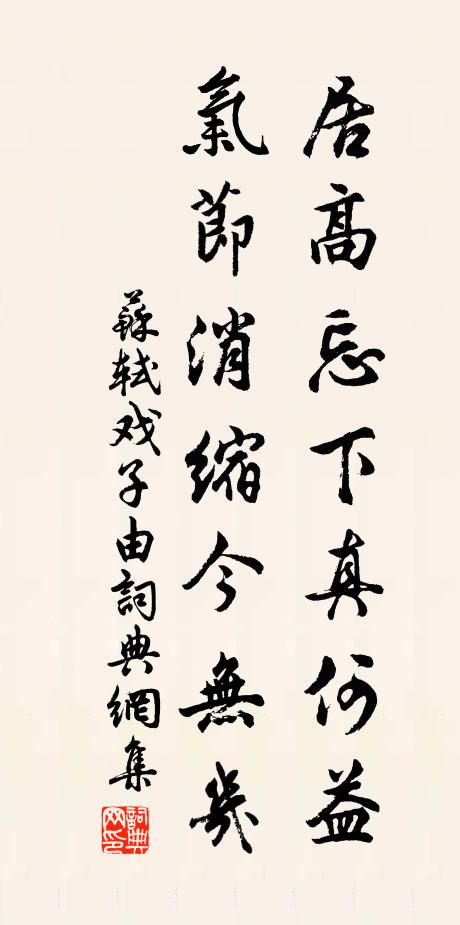 居高忘下真何益
氣節消縮今無幾
蘇軾戏子由詞典網集
詞典網印